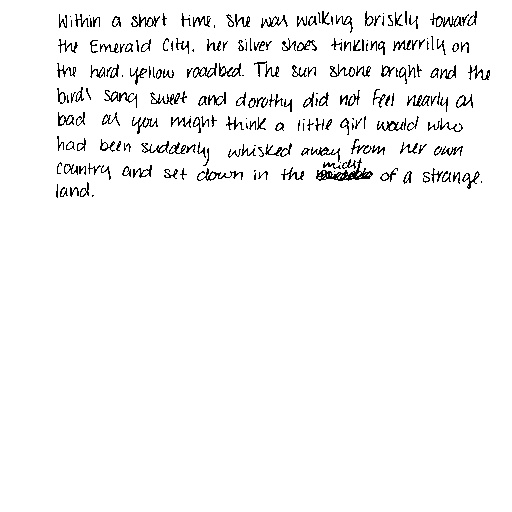 Within a short time. She was walking briskly toward
the Emerald City. her silver shoes tinkling merrily on
the hard. yellow roadbed. The sun shone bright and the
birds sang sweet and dorothy did not feel nearly as
bad as you might think a little girl would who
had been suddenly whisked away from her own
country and set down in the midst of a strange.
land.